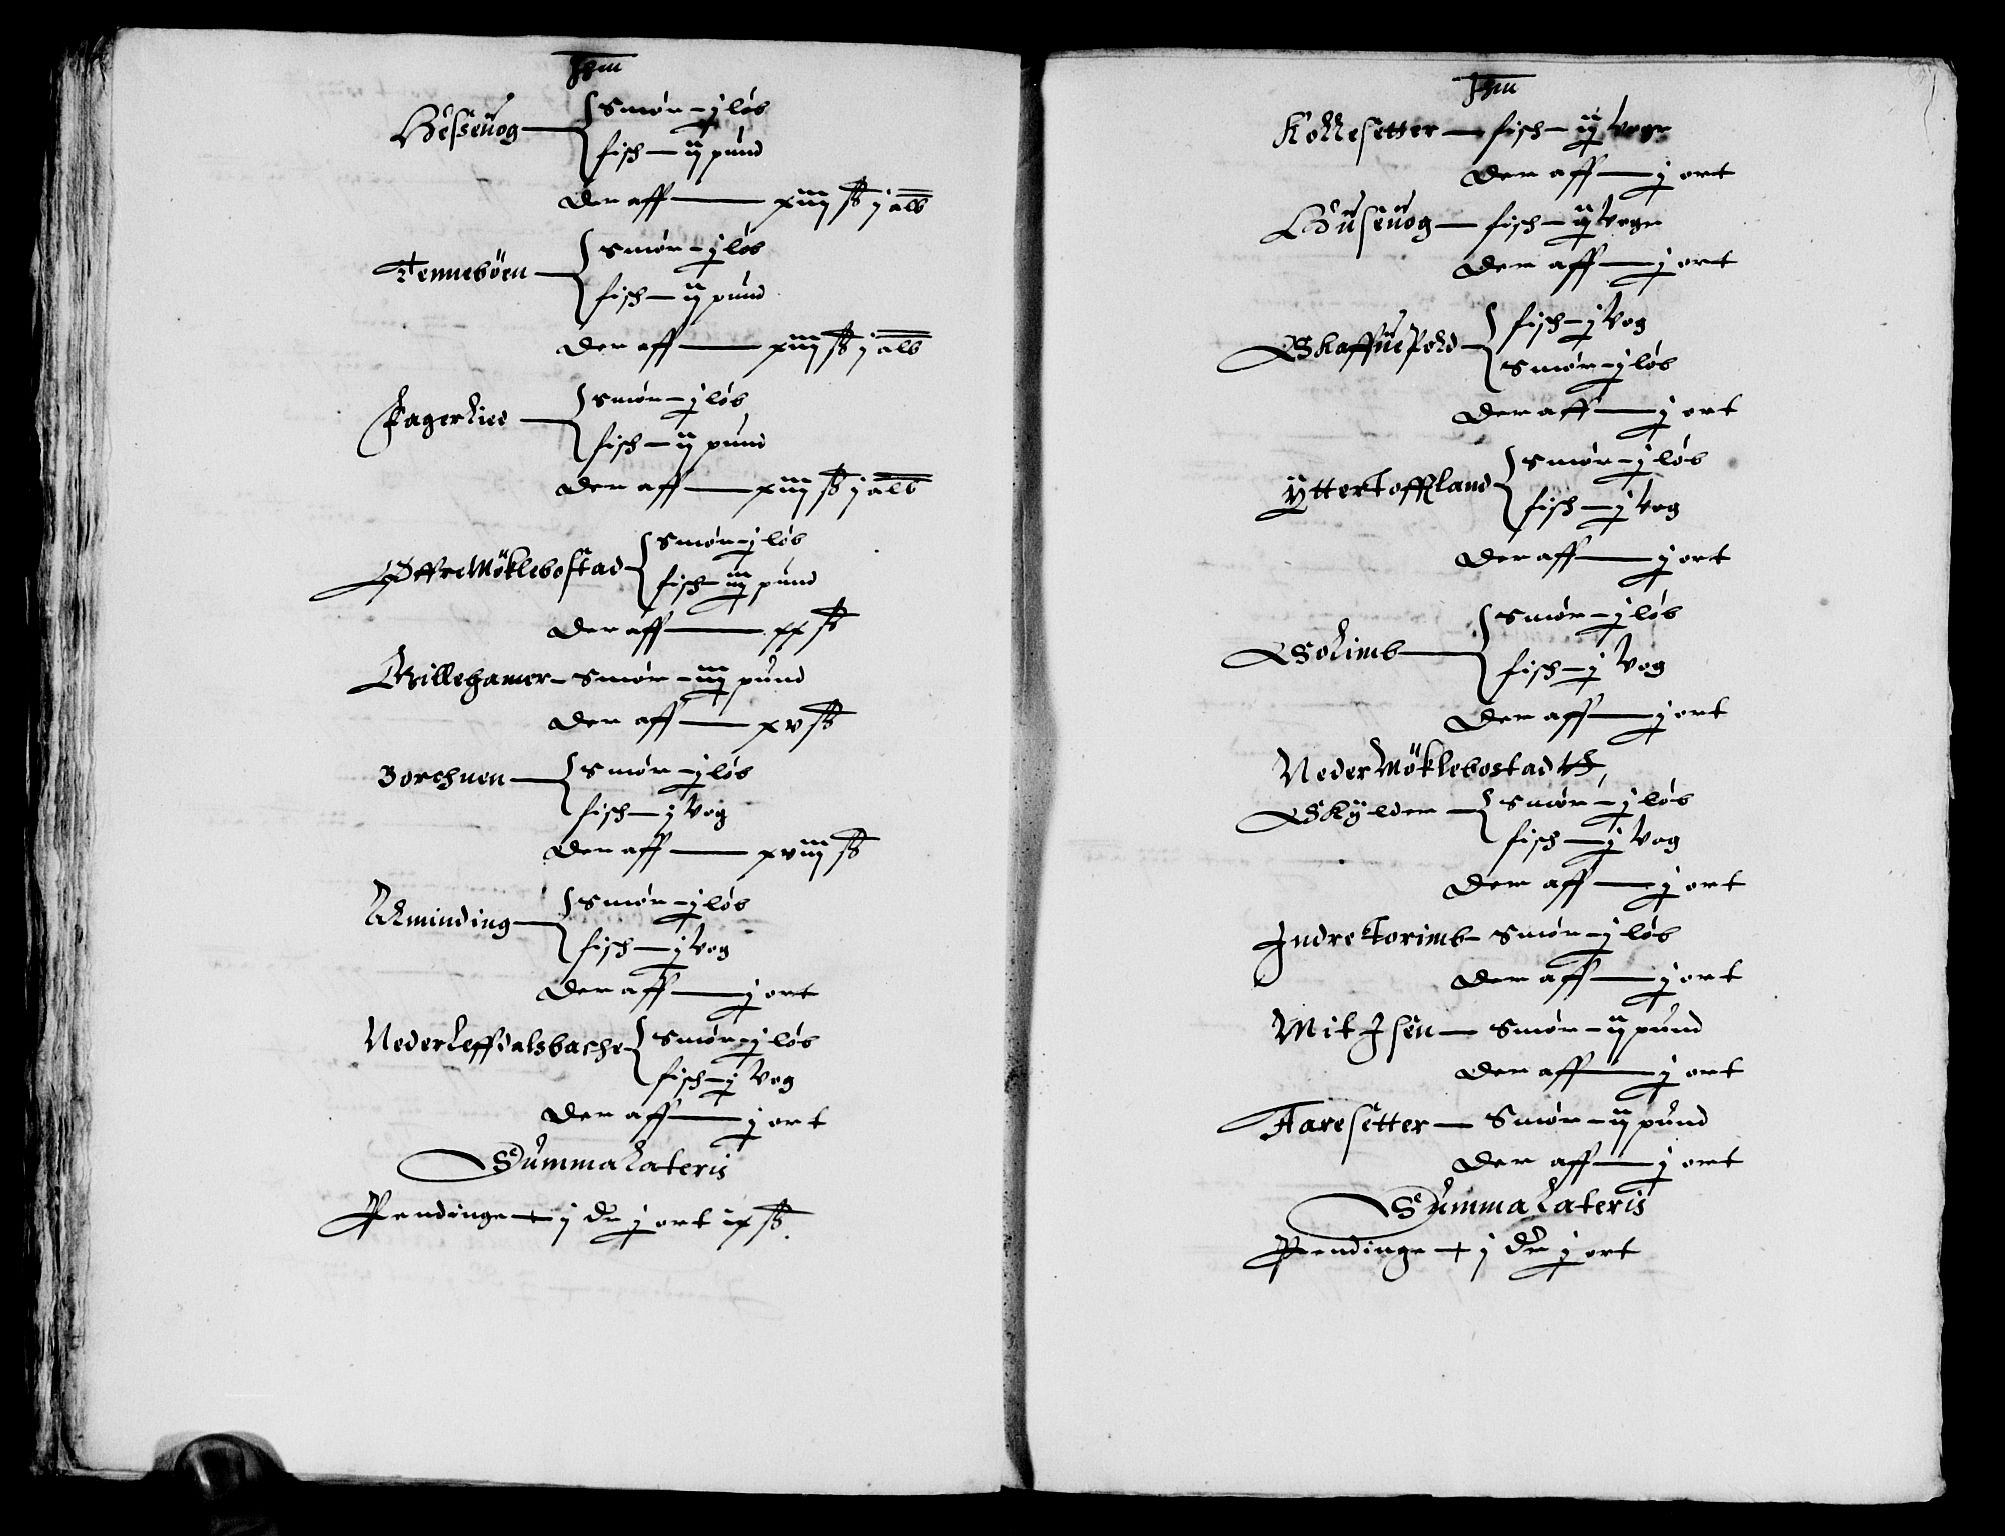 Hesseuog { Smør – j løb
fisch – ij pund
Der aff — xiiij ß j alb
Tennebøen { Smør – j løb
fisch – ij pund
Der aff — xiiij ß j alb
Fagerlied { Smør – j løb
fisch – ij pund
Der aff — xiiij ß j alb
Øffre Møklebostad { Smør – j løb
fisch – iiij pund
Der aff — xx ß
Lillehamer – Smør – iiij pund
Der aff — xv ß
Borchuen { Smør – j løb
fisch – j Vog
Der aff — xviij ß
Alminding { Smør – j løb
fisch – j Vog
Der aff — j ort
Neder Leffdalsbache { Smør – j løb
fisch – j Vog
Der aff — j ort
Summa Lateris
Pendinge – j dr j ort ix ß.

Kollesetter — fisch – ij Voger
Der aff — j ort
Husëuog — fisch – ij Voger
Der aff — j ort
{ fisch – j Vog
Smør – j løb
Der aff — j ort
Ytter Toffland { Smør – j løb
fisch – j Vog
Der aff — j ort
Solimb { Smør – j løb
fisch – j Vog
Der aff — j ort
Neder Møklebostad
Skylder { Smør – j løb
fisch – j Vog
Der aff — j ort
Indre Torimb – Smør – j løb
Der aff — j ort
Mit Isen — Smør – ij pund
Der aff — j ort
Faresetter — Smør – ij pund
Der aff — j ort
Summa Lateris
Pendinge – j dr j ort